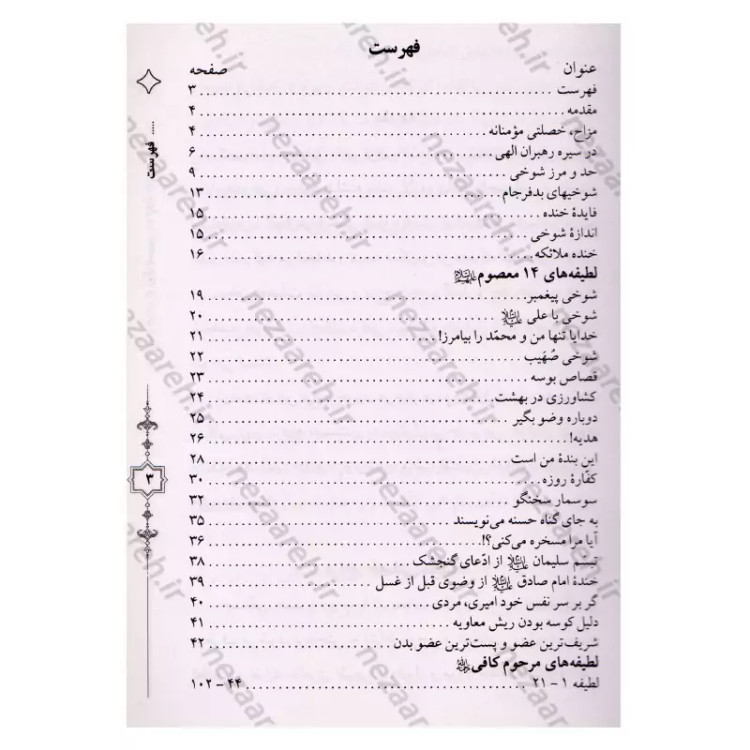 فهرست
عنوان صفحه
فهرست ........ ۳
مقدمه ........ ۴
مزاح، خصلتی مؤمنانه ........ ۴
در سیره رهبران الهی ........ ۶
حد و مرز شوخی ........ ۹
شوخیهای بدفرجام ........ ۱۳
فایدهٔ خنده ........ ۱۵
اندازهٔ شوخی ........ ۱۵
خنده ملائکه ........ ۱۶
لطیفه‌های ۱۴ معصوم
شوخی پیغمبر ........ ۱۹
شوخی با علی ........ ۲۰
خدایا تنها من و محمّد را بیامرز! ........ ۲۱
شوخی صُهَیب ........ ۲۲
قصاص بوسه ........ ۲۳
کشاورزی در بهشت ........ ۲۴
دوباره وضو بگیر ........ ۲۵
هدیه! ........ ۲۶
این بندهٔ من است ........ ۲۸
کفّارهٔ روزه ........ ۳۰
سوسمار سخنگو ........ ۳۲
به جای گناه حسنه می‌نویسند ........ ۳۵
آیا مرا مسخره می‌کنی؟! ........ ۳۶
تبسّم سلیمان از ادّعای گنجشک ........ ۳۸
خندهٔ امام صادق از وضوی قبل از غسل ........ ۳۹
گر بر سر نفس خود امیری، مردی ........ ۴۰
دلیل کوسه بودن ریش معاویه ........ ۴۱
شریف‌ترین عضو و پست‌ترین عضو بدن ........ ۴۲
لطیفه‌های مرحوم کافی
لطیفه ۱ – ۲۱ ........ ۴۴ – ۱۰۲
..... فهرست
۳
nezaareh.ir